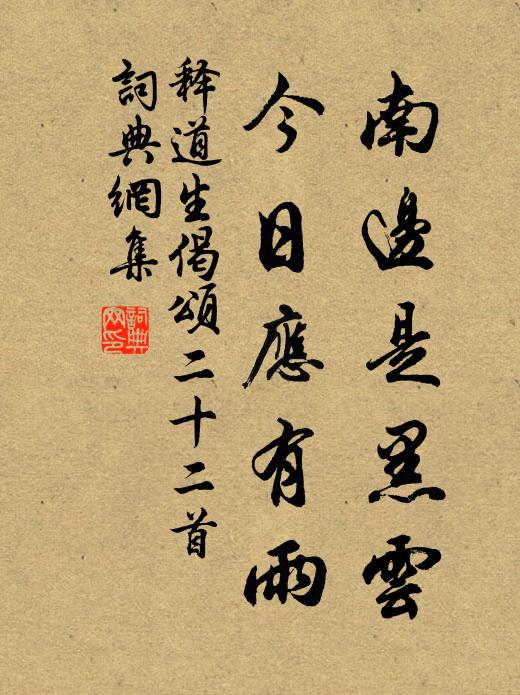 南邊是黑雲
今日應有雨
释道生偈頌二十二首
詞典網集
詞典网印